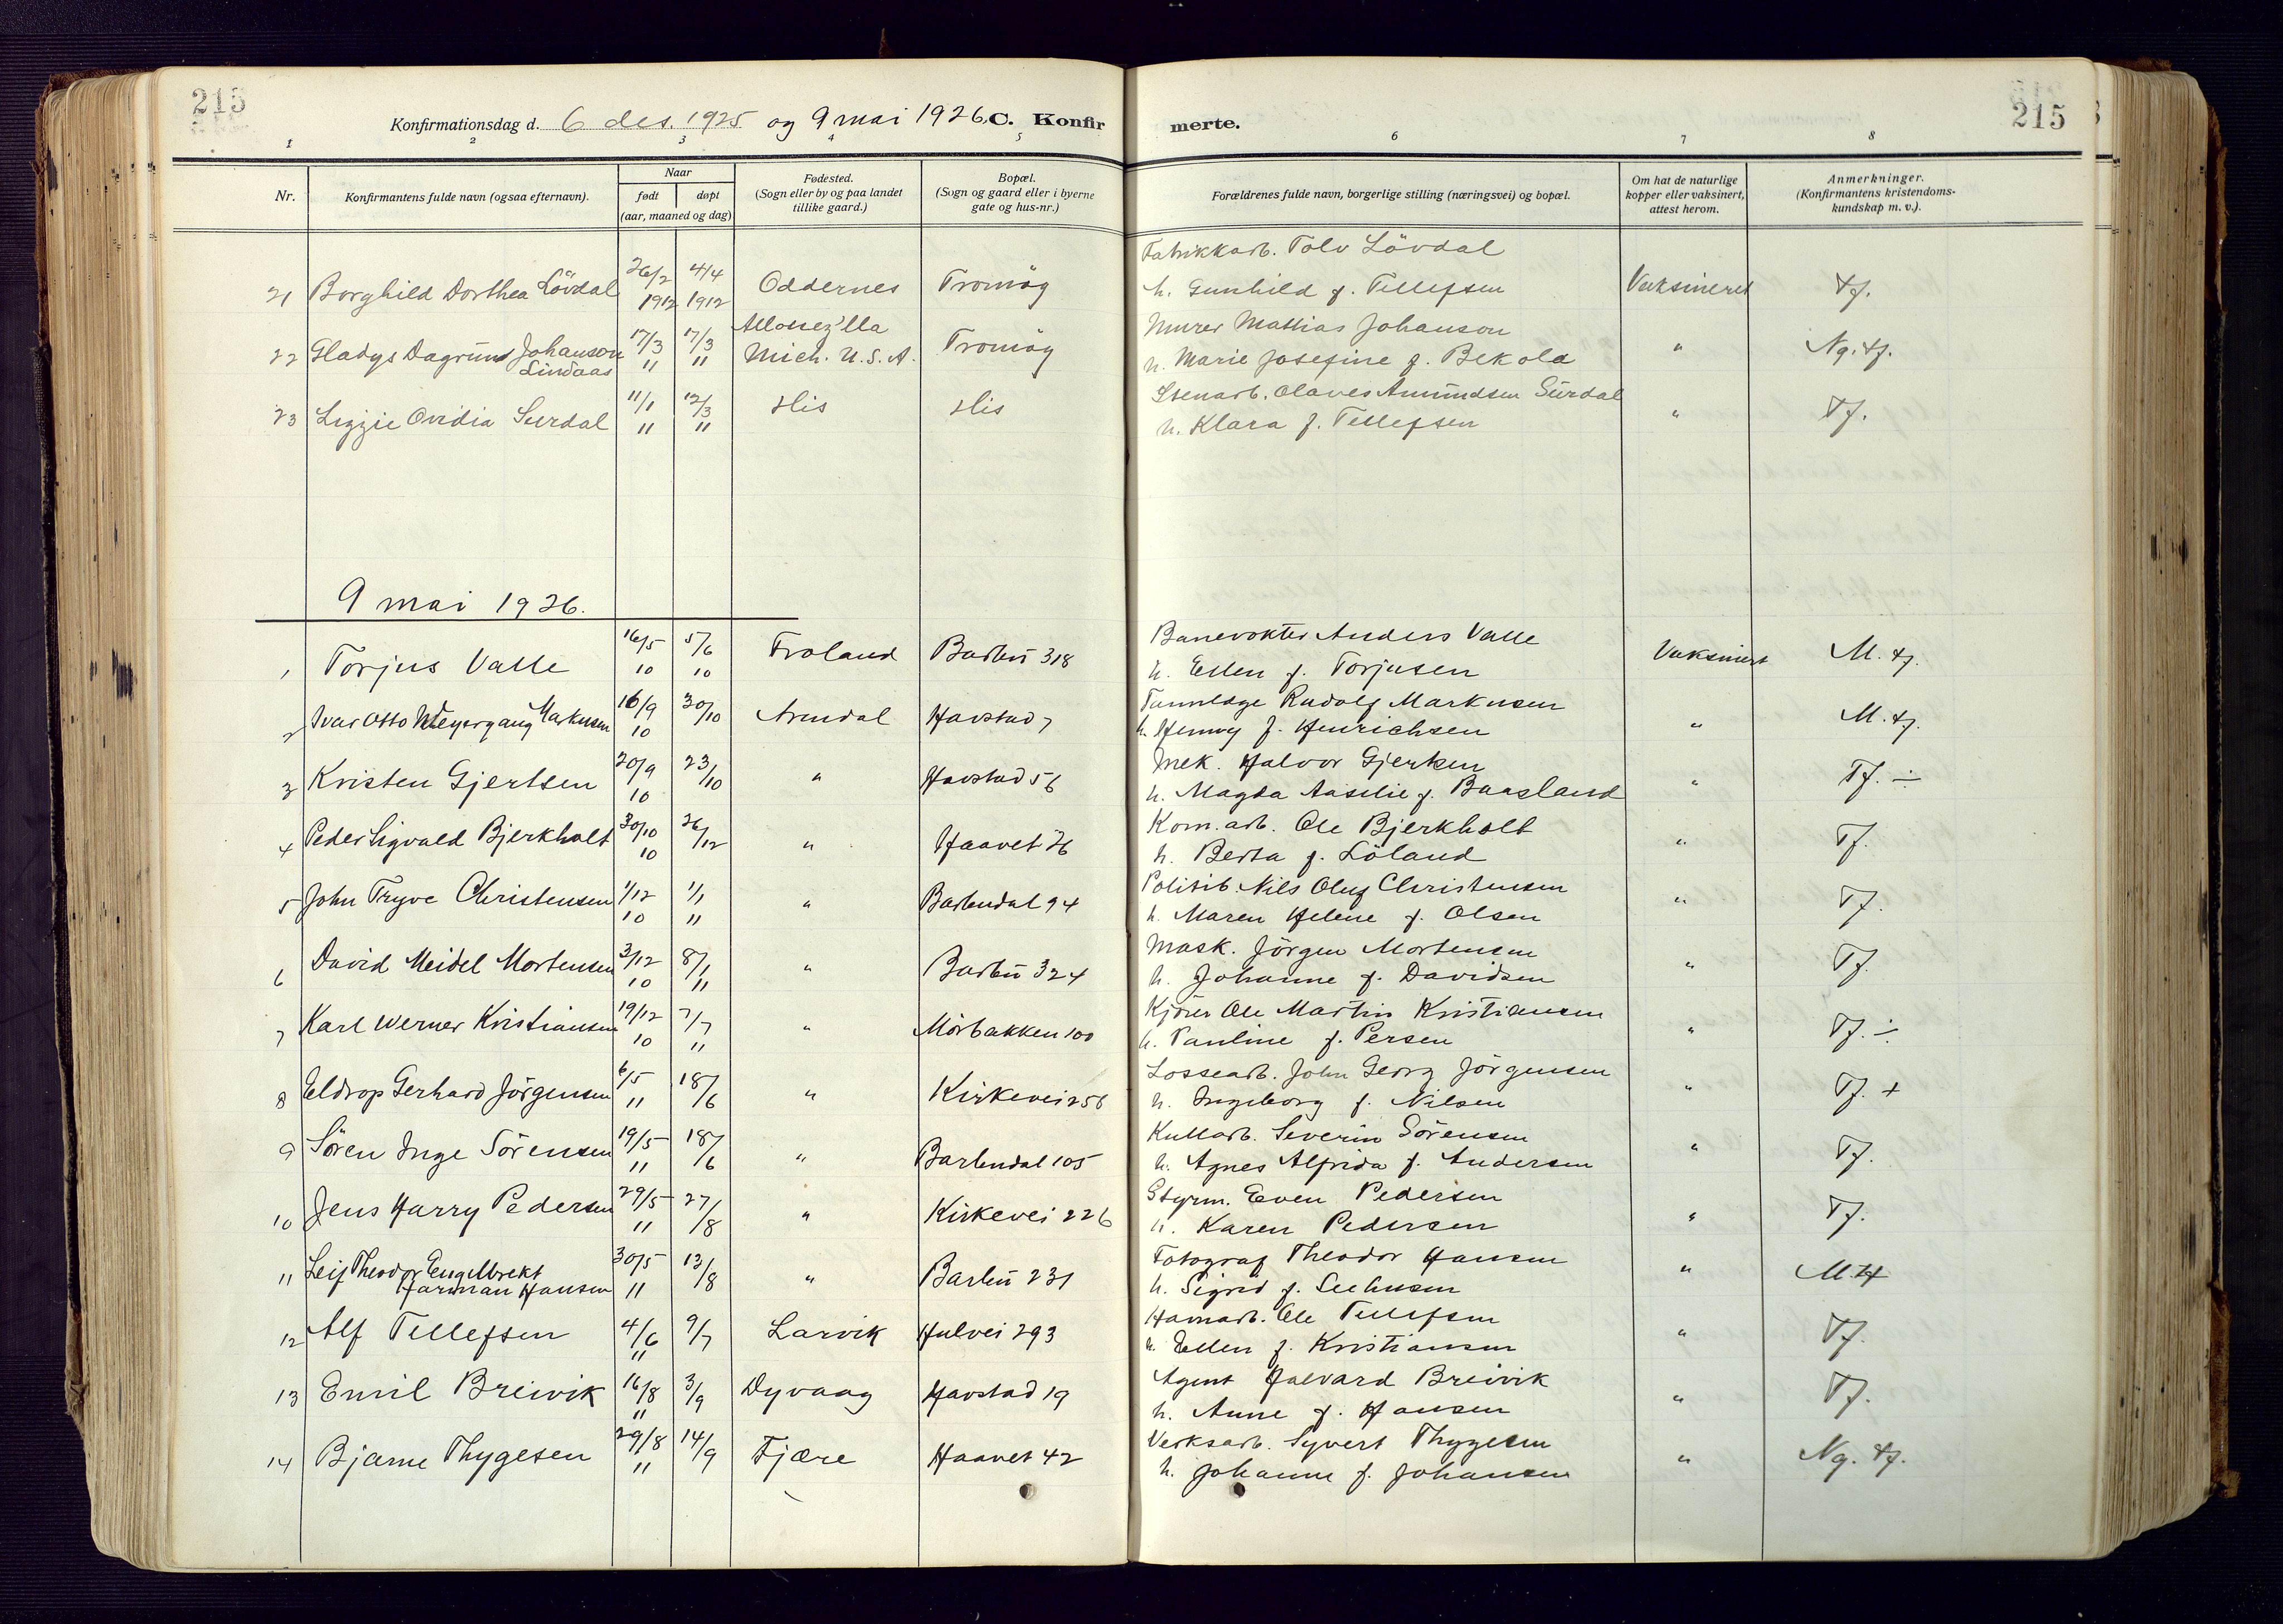 215
215
Konfirmationsdag d. 6 des. 1925 og 9 mai 1926 C. Konfirmerte.
1 2 3 4 5 6 7 8
Nr. Konfirmantens fulde navn (ogsaa efternavn). Naar født døpt (aar, maaned og dag) Fødested. (Sogn eller by og paa landet tillike gaard.) Bopæl. (Sogn og gaard eller i byerne gate og hus-nr.) Forældrenes fulde navn, borgerlige stilling (næringsvei) og bopæl. Om hat de naturlige kopper eller vaksinert, attest herom. Anmerkninger. (Konfirmantens kristendoms-kundskap m. v.).
Fabrikkarb. Tolv Lövdal
21 Borghild Dorthea Lövdal 26/2 1912 4/4 1912 Oddernes Tromöy h. Gunhild f. Tellefsen Vaksineret Tf.
Murer Mathias Johanson
22 Gladys Dagrun Johanson Lindaas 17/3 " 17/3 " Mich. U.S.A. Tromöy h. Marie Josefine f. Bekold " Ng. tf.
Stenarb. Olaves Amundsen Surdal
23 Lizzie Ovidia Surdal 11/1 " 12/3 " His His h. Klara f. Tellefsen " Tf.
9 mai 1926.
Banevokter Anders Valle
1 Torjus Valle 16/5 10 5/6 10 Froland Barbu 318 h. Ellen f. Torjusen Vaksinert M. tf.
Tannlæge Rudolf Markusen
2 Ivar Otto Meyergang Markusen 16/9 10 30/10 Arendal Havstad 7 h. Henny f. Henrichsen " M. tf.
Mek. Halvor Gjertsen
3 Kristen Gjertsen 20/9 10 23/10 " Havstad 56 h. Magda Aasilie f. Baasland " Tf. ÷
Kom.arb. Ole Bjerkholt
4 Peder Sigvald Bjerkholt 30/10 10 26/12 " Haavet 26 h. Berta f. Löland " Tf.
Politib. Nils Oluf Christensen
5 John Trygve Christensen 1/12 10 1/1 11 " Barbudal 94 h. Maren Helene f. Olsen " Tf.
Mask. Jörgen Mortensen
6 David Meidel Mortensen 3/12 10 8/1 11 " Barbu 324 h. Johanne f. Davidsen " Tf.
Kjörer Ole Martin Kristiansen
7 Karl Werner Kristiansen 19/12 10 7/7 11 " Mörbakken 100 h. Pauline f. Persen " Tf. ÷
Lossearb. John Georg Jörgensen
8 Eldrop Gerhard Jörgensen 6/5 11 18/6 " Kirkevei 256 h. Ingeborg f. Nilsen " Tf. +
Kullarb. Severin Sörensen
9 Sören Inge Sörensen 19/5 11 18/6 " Barbudal 105 h. Agnes Alfrida f. Andersen " Tf.
Styrm. Even Pedersen
10 Jens Harry Pedersen 29/5 11 27/8 " Kirkevei 226 h. Karen Pedersen " Tf.
Fotograf Theodor Hansen
11 Leif Theodor Engelbrekt Harman Hansen 30/5 11 13/8 " Barbu 231 h. Sigrid f. Seehusen " M. tf
Havnarb. Ole Tellefsen
12 Alf Tellefsen 4/6 11 9/7 Larvik Hulvei 293 h. Ellen f. Kristiansen " Tf.
Agent Halvard Breivik
13 Emil Breivik 16/8 11 3/9 Dyvaag Havstad 19 h. Anne f. Hansen " Tf.
Verksarb. Syvert Thygesen
14 Bjarne Thygesen 29/8 11 14/9 Fjære Haavet 42 h. Johanne f. Johansen " Ng. tf.